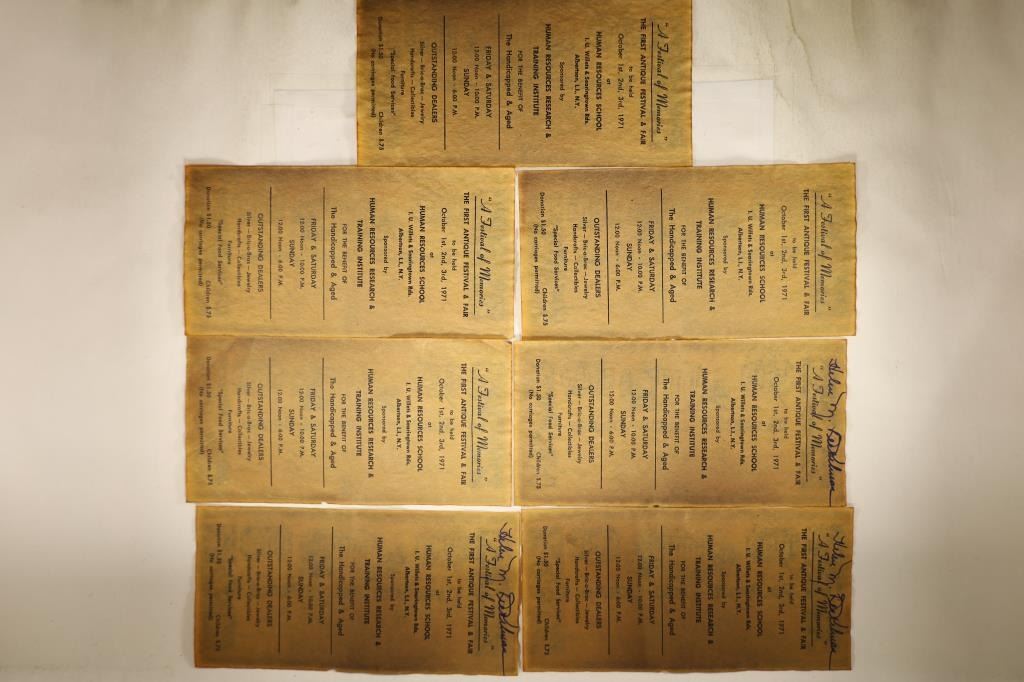 "A Festival of Memories"
THE FIRST ANTIQUE FESTIVAL & FAIR
to be held
October 1st, 2nd, 3rd, 1971
at
HUMAN RESOURCES SCHOOL
I. U. Willets & Searingtown Rds.
Albertson, L.I., N.Y.
Sponsored by
HUMAN RESOURCES RESEARCH &
TRAINING INSTITUTE
FOR THE BENEFIT OF
The Handicapped & Aged
FRIDAY & SATURDAY
12:00 Noon - 10:00 P.M.
SUNDAY
12:00 Noon - 6:00 P.M.
OUTSTANDING DEALERS
Silver — Bric-a-Brac — Jewelry
Handcrafts — Collectibles
Furniture
"Special Food Services"
Donation $1.50 Children $.75
(No carriages permitted)
"A Festival of Memories"
THE FIRST ANTIQUE FESTIVAL & FAIR
to be held
October 1st, 2nd, 3rd, 1971
at
HUMAN RESOURCES SCHOOL
I. U. Willets & Searingtown Rds.
Albertson, L.I., N.Y.
Sponsored by
HUMAN RESOURCES RESEARCH &
TRAINING INSTITUTE
FOR THE BENEFIT OF
The Handicapped & Aged
FRIDAY & SATURDAY
12:00 Noon - 10:00 P.M.
SUNDAY
12:00 Noon - 6:00 P.M.
OUTSTANDING DEALERS
Silver — Bric-a-Brac — Jewelry
Handcrafts — Collectibles
Furniture
"Special Food Services"
Donation $1.50 Children $.75
(No carriages permitted)
"A Festival of Memories"
THE FIRST ANTIQUE FESTIVAL & FAIR
to be held
October 1st, 2nd, 3rd, 1971
at
HUMAN RESOURCES SCHOOL
I. U. Willets & Searingtown Rds.
Albertson, L.I., N.Y.
Sponsored by
HUMAN RESOURCES RESEARCH &
TRAINING INSTITUTE
FOR THE BENEFIT OF
The Handicapped & Aged
FRIDAY & SATURDAY
12:00 Noon - 10:00 P.M.
SUNDAY
12:00 Noon - 6:00 P.M.
OUTSTANDING DEALERS
Silver — Bric-a-Brac — Jewelry
Handcrafts — Collectibles
Furniture
"Special Food Services"
Donation $1.50 Children $.75
(No carriages permitted)
"A Festival of Memories"
THE FIRST ANTIQUE FESTIVAL & FAIR
to be held
October 1st, 2nd, 3rd, 1971
at
HUMAN RESOURCES SCHOOL
I. U. Willets & Searingtown Rds.
Albertson, L.I., N.Y.
Sponsored by
HUMAN RESOURCES RESEARCH &
TRAINING INSTITUTE
FOR THE BENEFIT OF
The Handicapped & Aged
FRIDAY & SATURDAY
12:00 Noon - 10:00 P.M.
SUNDAY
12:00 Noon - 6:00 P.M.
OUTSTANDING DEALERS
Silver — Bric-a-Brac — Jewelry
Handcrafts — Collectibles
Furniture
"Special Food Services"
Donation $1.50 Children $.75
(No carriages permitted)
Helen M.
"A Festival of Memories"
THE FIRST ANTIQUE FESTIVAL & FAIR
to be held
October 1st, 2nd, 3rd, 1971
at
HUMAN RESOURCES SCHOOL
I. U. Willets & Searingtown Rds.
Albertson, L.I., N.Y.
Sponsored by
HUMAN RESOURCES RESEARCH &
TRAINING INSTITUTE
FOR THE BENEFIT OF
The Handicapped & Aged
FRIDAY & SATURDAY
12:00 Noon - 10:00 P.M.
SUNDAY
12:00 Noon - 6:00 P.M.
OUTSTANDING DEALERS
Silver — Bric-a-Brac — Jewelry
Handcrafts — Collectibles
Furniture
"Special Food Services"
Donation $1.50 Children $.75
(No carriages permitted)
Helen M.
"A Festival of Memories"
THE FIRST ANTIQUE FESTIVAL & FAIR
to be held
October 1st, 2nd, 3rd, 1971
at
HUMAN RESOURCES SCHOOL
I. U. Willets & Searingtown Rds.
Albertson, L.I., N.Y.
Sponsored by
HUMAN RESOURCES RESEARCH &
TRAINING INSTITUTE
FOR THE BENEFIT OF
The Handicapped & Aged
FRIDAY & SATURDAY
12:00 Noon - 10:00 P.M.
SUNDAY
12:00 Noon - 6:00 P.M.
OUTSTANDING DEALERS
Silver — Bric-a-Brac — Jewelry
Handcrafts — Collectibles
Furniture
"Special Food Services"
Donation $1.50 Children $.75
(No carriages permitted)
Helen M.
"A Festival of Memories"
THE FIRST ANTIQUE FESTIVAL & FAIR
to be held
October 1st, 2nd, 3rd, 1971
at
HUMAN RESOURCES SCHOOL
I. U. Willets & Searingtown Rds.
Albertson, L.I., N.Y.
Sponsored by
HUMAN RESOURCES RESEARCH &
TRAINING INSTITUTE
FOR THE BENEFIT OF
The Handicapped & Aged
FRIDAY & SATURDAY
12:00 Noon - 10:00 P.M.
SUNDAY
12:00 Noon - 6:00 P.M.
OUTSTANDING DEALERS
Silver — Bric-a-Brac — Jewelry
Handcrafts — Collectibles
Furniture
"Special Food Services"
Donation $1.50 Children $.75
(No carriages permitted)